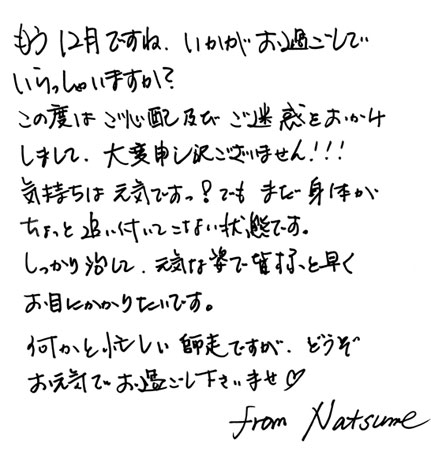 もう12月ですね、いかがお過ごしで
いらっしゃいますか？
この度はご心配及びご迷惑をおかけ
しまして、大変申し訳ございません!!!
気持ちは元気ですっ！でもまだ身体が
ちょっと追い付いてこない状態です。
しっかり治して、元気な姿で皆様と早く
お目にかかりたいです。
何かと忙しい師走ですが、どうぞ
お元気でお過ごし下さいませ♡
from Natsume